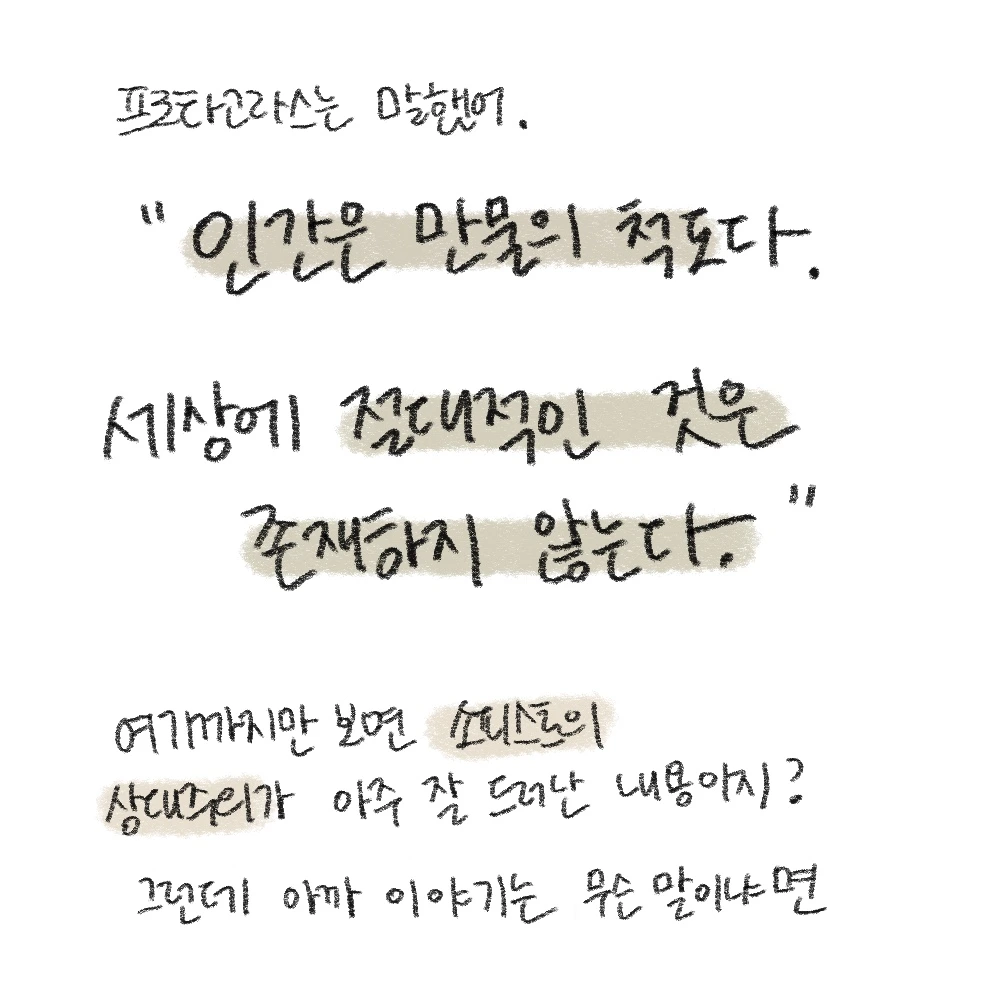 프로타고라스는 말했어.
"인간은 만물의 척도다.
세상에 절대적인 것은
존재하지 않는다."
여기까지만 보면 소피스트의
상대주의가 아주 잘 드러난 내용이지?
그런데 아까 이야기는 무슨 말이냐면